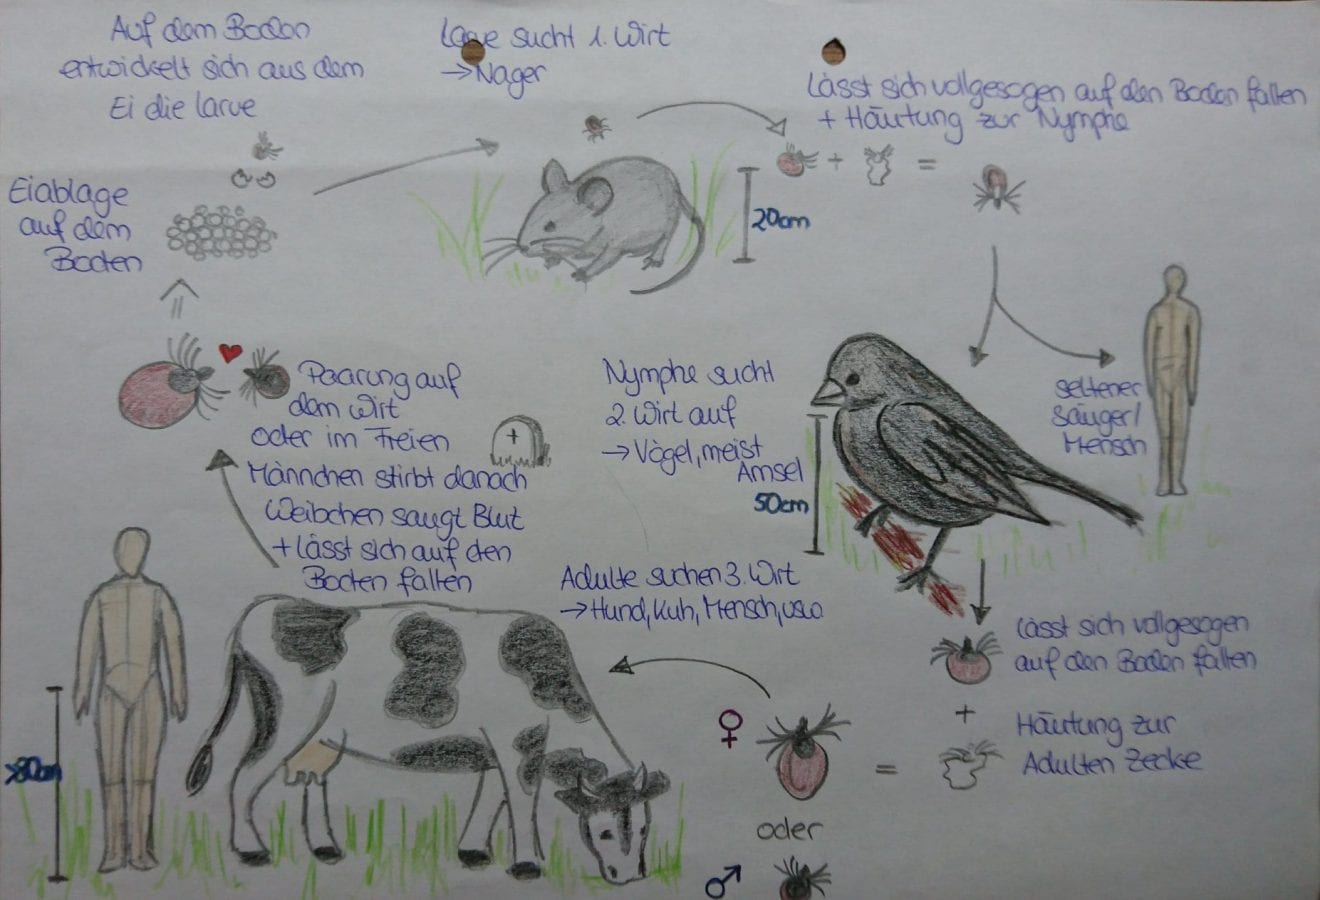 Auf dem Boden
entwickelt sich aus dem
Ei die Larve
Larve sucht 1. Wirt
→ Nager
Lässt sich vollgesogen auf den Boden fallen
+ Häutung zur Nymphe
+ =
20cm
Eiablage
auf dem
Boden
Paarung auf
dem Wirt
oder im Freien
Männchen stirbt danach
Weibchen saugt Blut
+ lässt sich auf den
Boden fallen
Nymphe sucht
2. Wirt auf
→ Vögel, meist
Amsel
50cm
seltener
Säuger/
Mensch
Lässt sich vollgesogen
auf den Boden fallen
+
Häutung zur
Adulten Zecke
Adulte suchen 3. Wirt
→ Hund, Kuh, Mensch, usw.
♀
=
oder
♂
>80cm